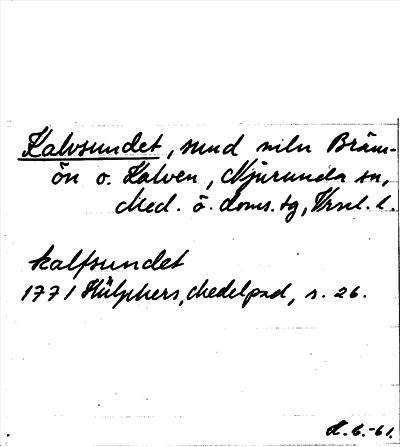 Kalvsundet, sund mln Bräm-
ön o. Kalven, Njurunda sn,
Med. ö. doms. tg, Vrnl. l.
kalfsundet
1771 Hülphers, Medelpad, s. 26.
H. G. -61.